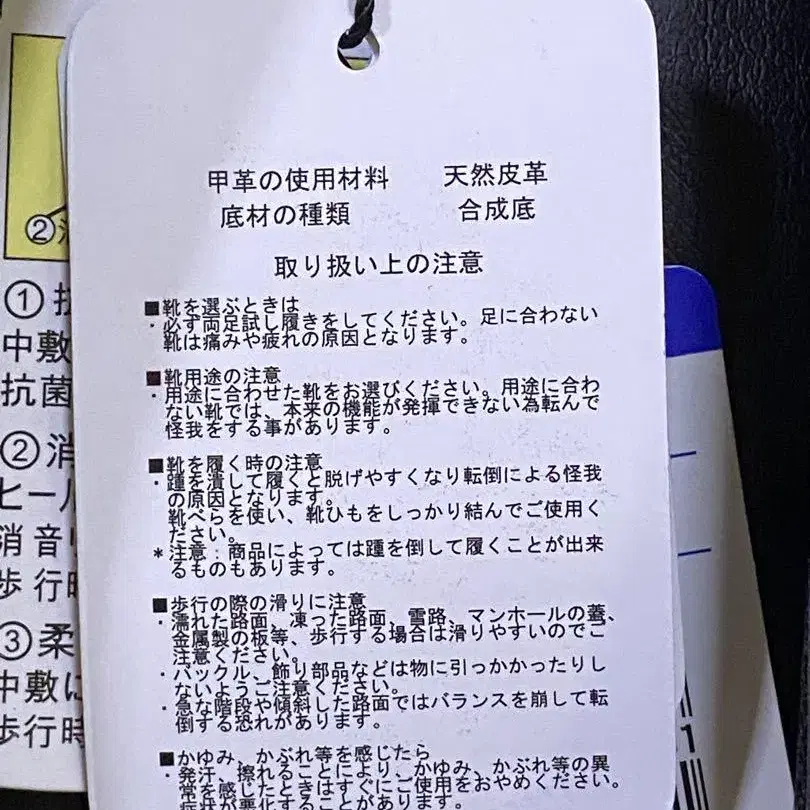 甲革の使用材料 天然皮革
底材の種類 合成底
取り扱い上の注意
■靴を選ぶときは
・必ず両足試し履きをしてください。足に合わない
靴は痛みや疲れの原因となります。
■靴用途の注意
・用途に合わせた靴をお選びください。用途に合わ
ない靴では、本来の機能が発揮できない為転んで
怪我をする事があります。
■靴を履く時の注意
・踵を潰して履くと脱げやすくなり転倒による怪我
の原因となります。
靴べらを使い、靴ひもをしっかり結んでご使用く
ださい。
*注意：商品によっては踵を倒して履くことが出来
るものもあります。
■歩行の際の滑りに注意
・濡れた路面、凍った路面、雪路、マンホールの蓋、
金属製の板等、歩行する場合は滑りやすいのでご
注意ください。
・バックル、飾り部品などは物に引っかかったりし
ないようご注意ください。
・急な階段や傾斜した路面ではバランスを崩して転
倒する恐れがあります。
■かゆみ、かぶれ等を感じたら
・発汗、擦れることにより、かゆみ、かぶれ等の異
常を感じたときはすぐにご使用をおやめください。
症状が悪化することがあります。
②消
①抗
中敷
抗菌
②消
ヒール
消音
歩行時
③柔
中敷に
歩行時
1